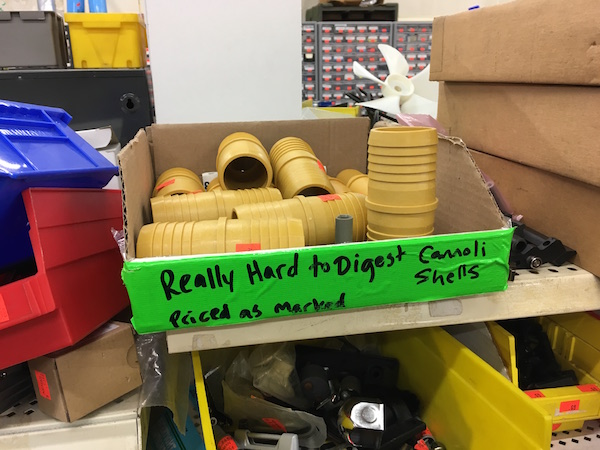 Really Hard to Digest Cannoli Shells
Priced as marked